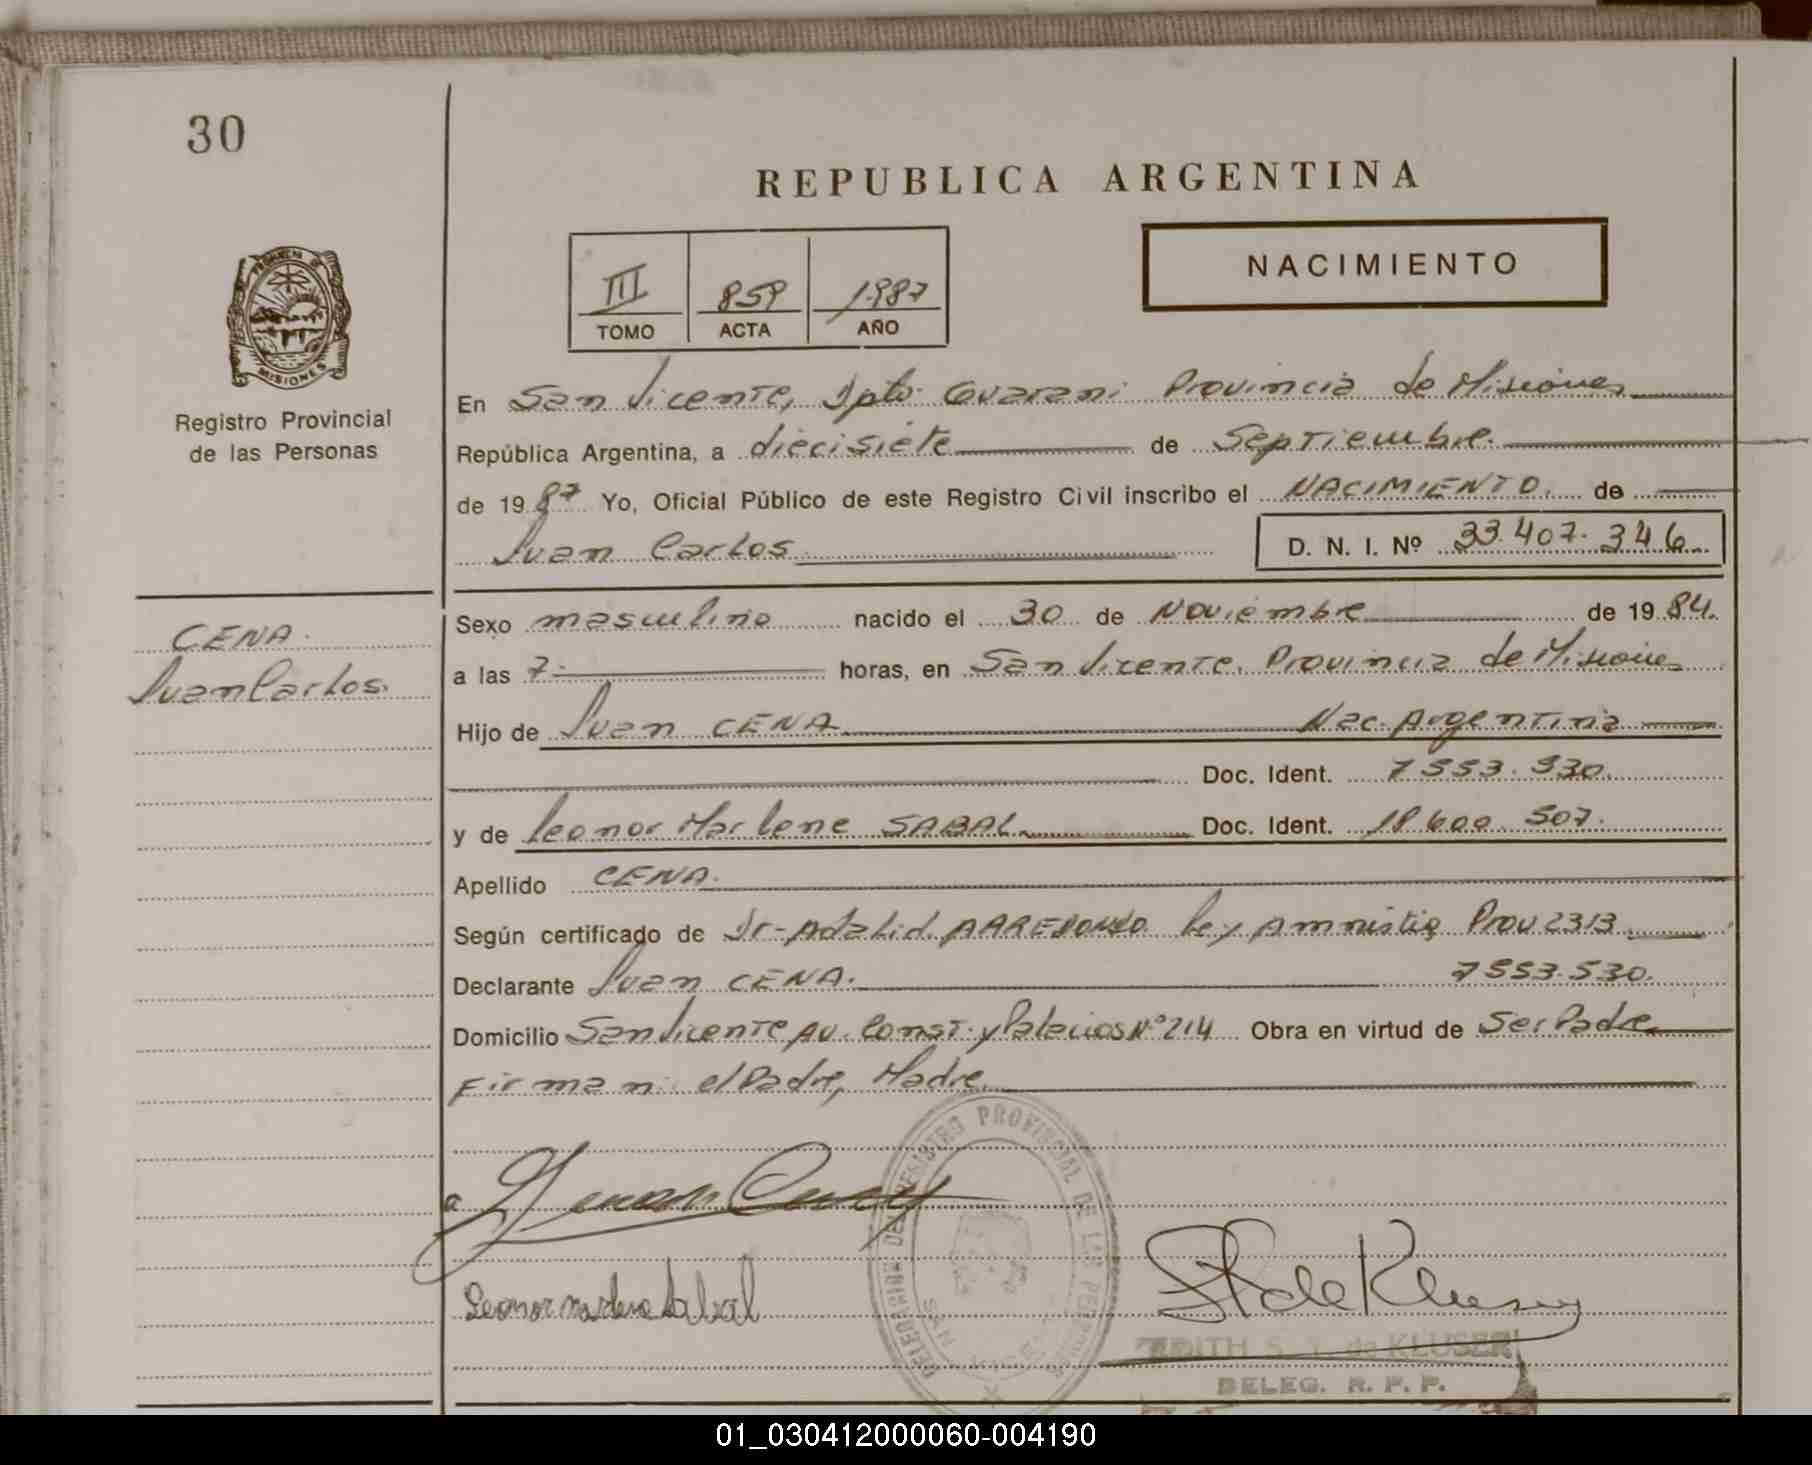 30
REPUBLICA ARGENTINA
NACIMIENTO
III 859 1987
TOMO ACTA AÑO
PROVINCIA DE MISIONES
Registro Provincial
de las Personas
En San Vicente, Dpto. Guarani Provincia de Misiones
República Argentina, a diecisiete de Septiembre.
de 1987 Yo, Oficial Público de este Registro Civil inscribo el NACIMIENTO. de
Juan Carlos D. N. I. Nº 33.407.346
CENA.
Juan Carlos.
Sexo masculino nacido el 30 de Noviembre de 1984.
a las 7- horas, en San Vicente. Provincia de Misiones
Hijo de Juan CENA Nac. Argentina
Doc. Ident. 7553.530.
y de Leonor Marlene SABAL Doc. Ident. 18600.507.
Apellido CENA.
Según certificado de Dr- Adalid ARREDONDO Ley Amnistia Prov 2313
Declarante Juan CENA. 7553.530.
Domicilio San Vicente Av. Const. y Palacios Nº 214 Obra en virtud de Ser Padre
Firman: el Padre, Madre.
DELEGACION DEL REGISTRO PROVINCIAL DE LAS PERSONAS
SAN VICENTE
Leonor Marlene Sabal
de Kluser
EDITH S. de KLUSER
DELEG. R. P. P.
01_030412000060-004190